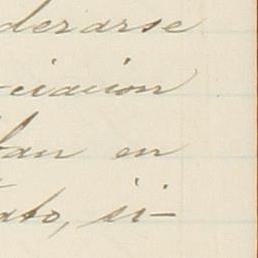 derarse
ciacion
fan en
ato, si-